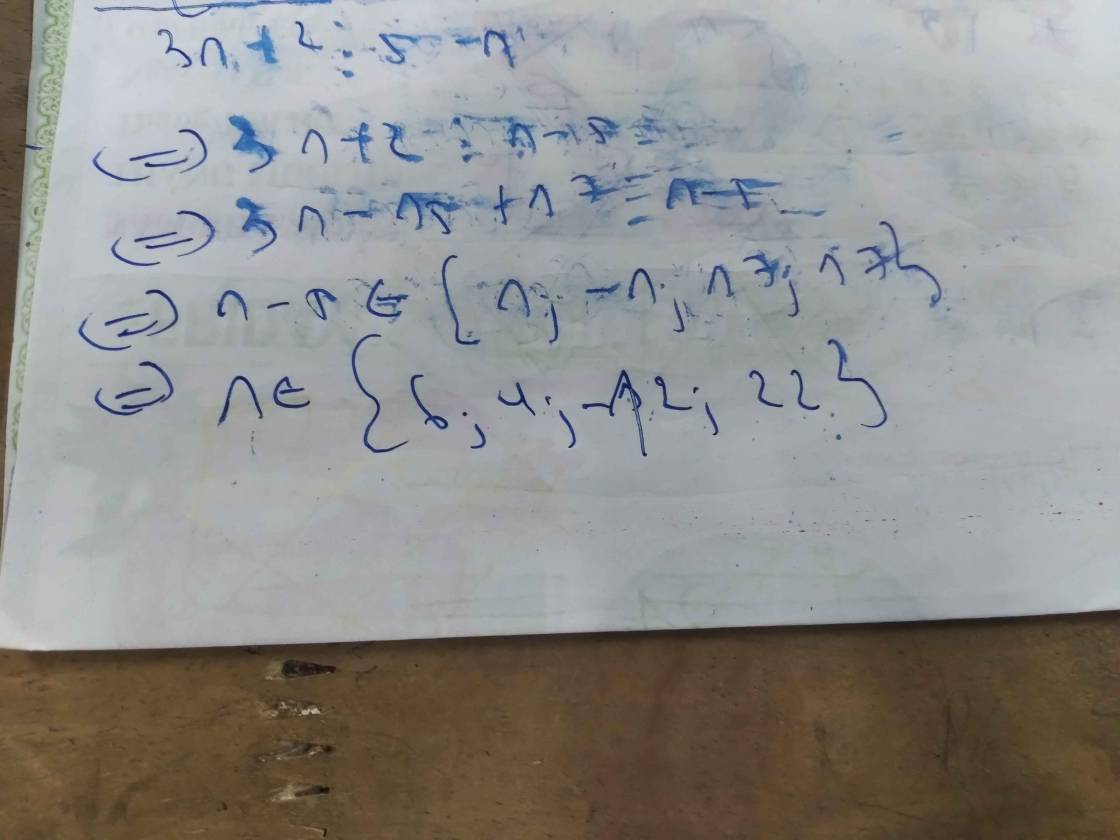 3n + 2 ⋮ 5 - n
(=) 3n + 2 ⋮ n - 5
(=) 3n - 15 + 17 ⋮ n - 5
(=) n - 5 ∈ {1; -1; 17; 17}
(=) n ∈ {6; 4; -12; 22}